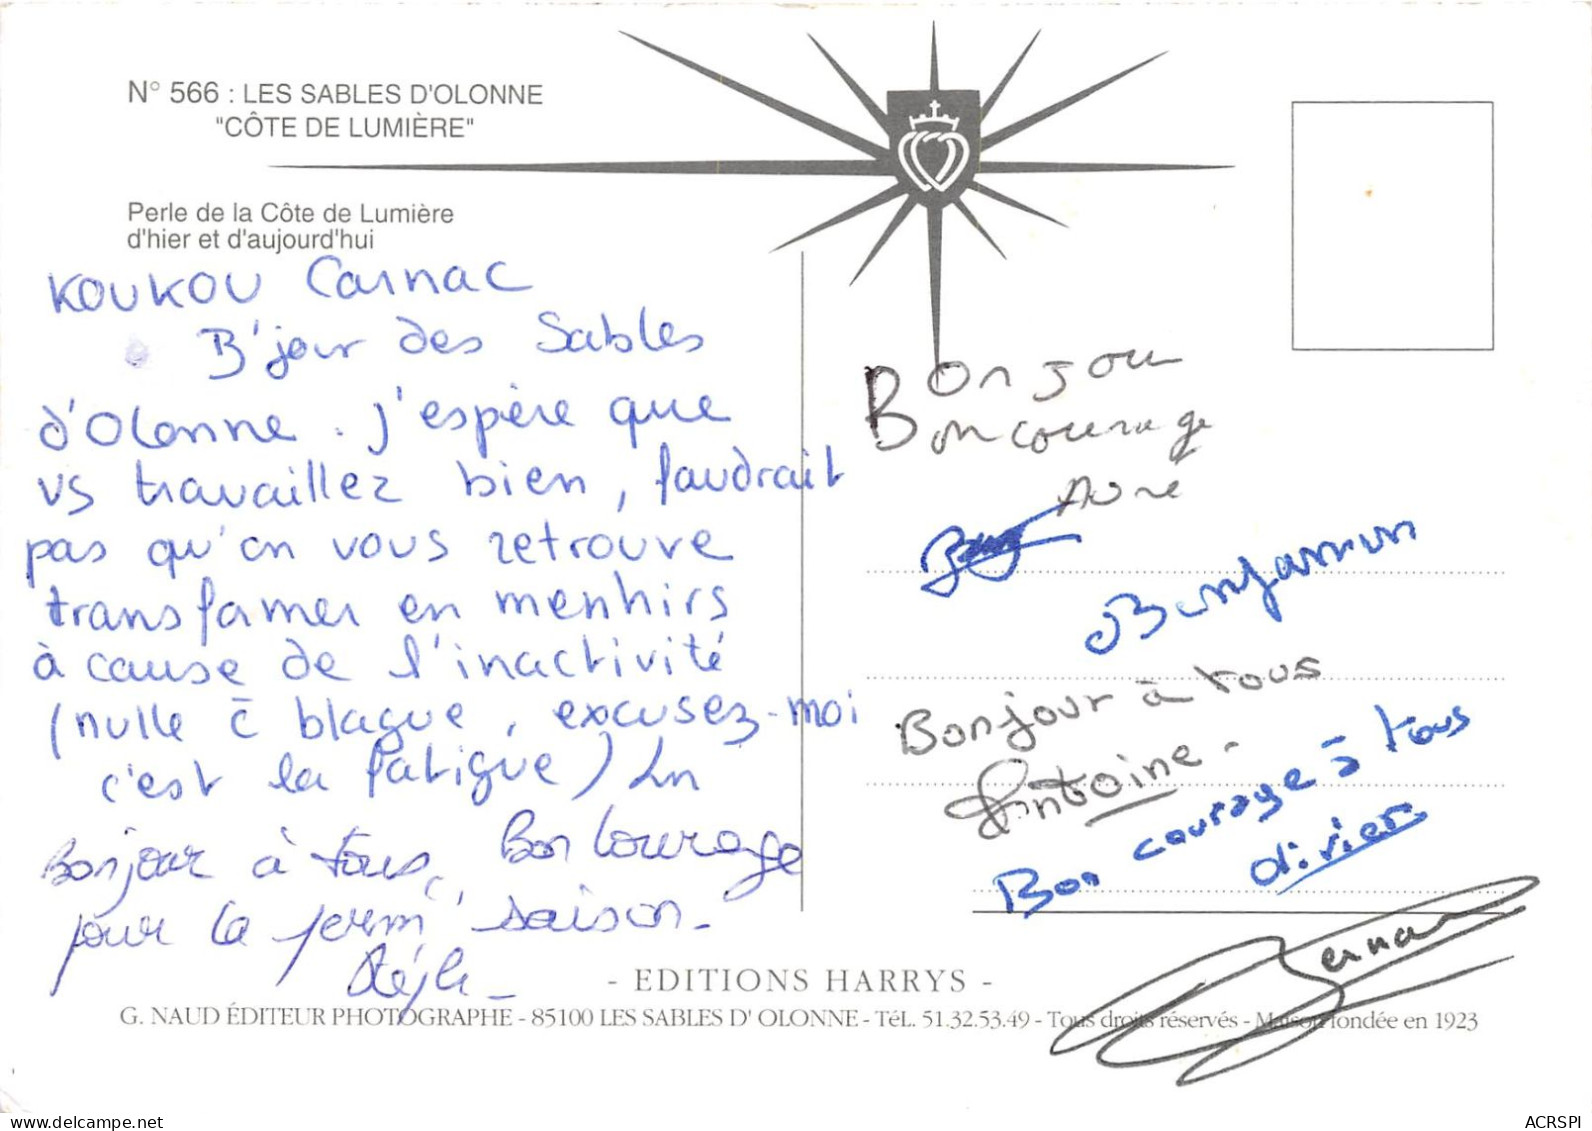 N° 566 : LES SABLES D'OLONNE
"CÔTE DE LUMIÈRE"
Perle de la Côte de Lumière
d'hier et d'aujourd'hui
KOUKOU Carnac
B'jour des Sables
d'Olonne. J'espère que
vs travaillez bien, faudrait
pas qu'on vous retrouve
transformer en menhirs
à cause de l'inactivité
(nulle ē blague, excusez-moi
c'est la fatigue)
Bonjour à tous, Bon Courage
pour la saison.
Bonjou
Bon courage
Benjamin
Bonjour à tous
Antoine.
Bon courage à tous
Olivier
Bernard
- EDITIONS HARRYS -
G. NAUD ÉDITEUR PHOTOGRAPHE - 85100 LES SABLES D' OLONNE - TéL. 51.32.53.49 - Tous droits réservés - Maison fondée en 1923
ACRSPI